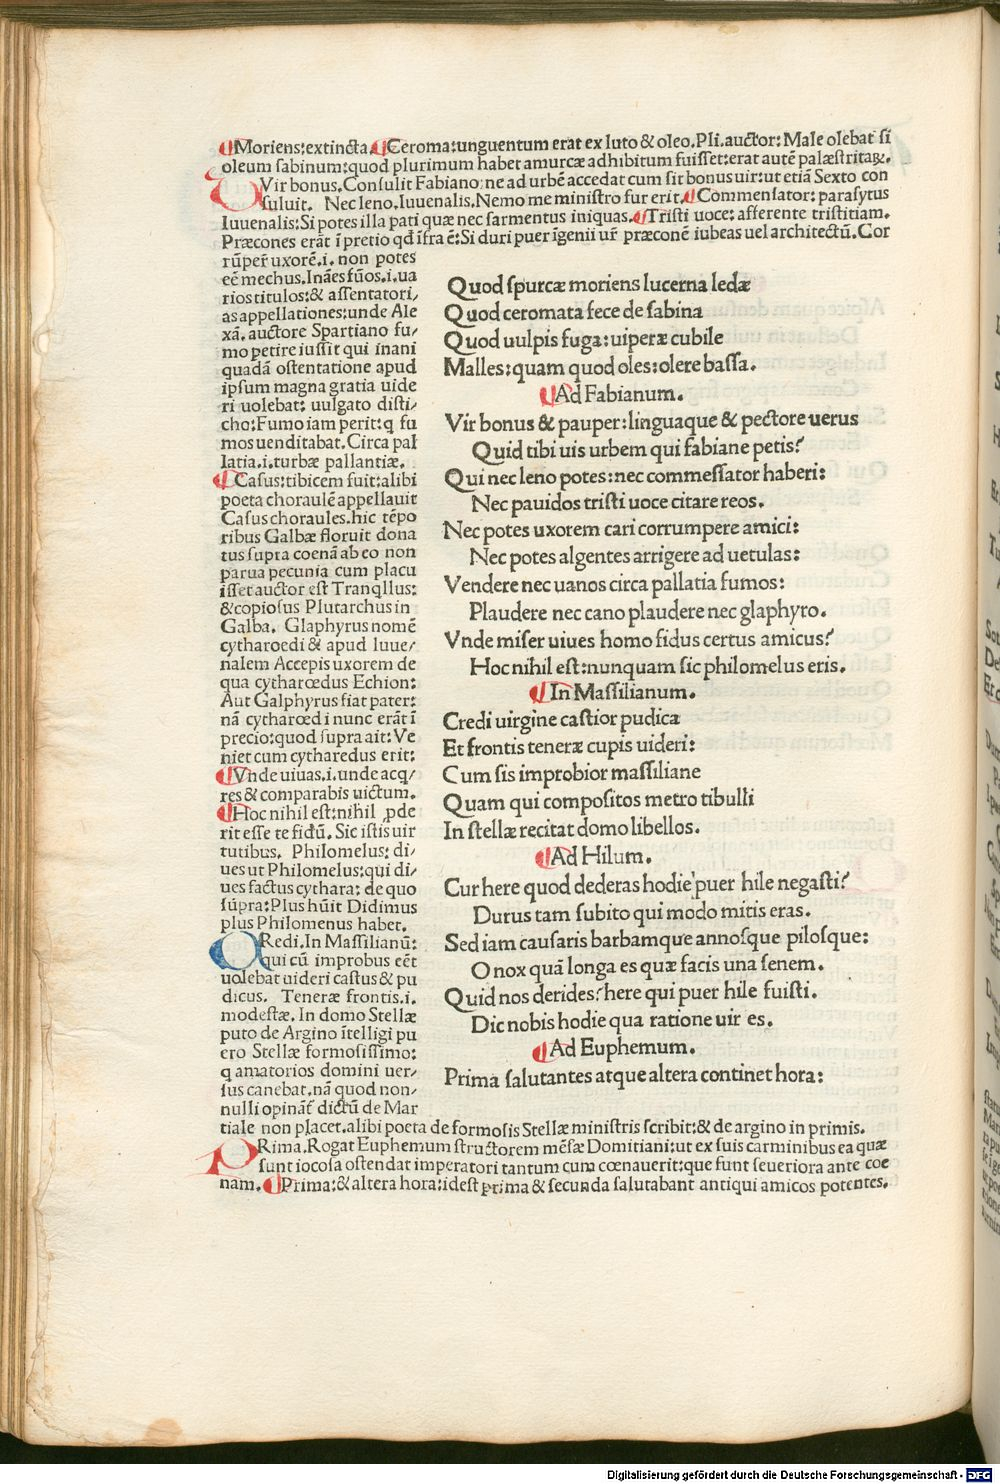 Moriens:extincta. Ceroma:unguentum erat ex luto & oleo. Pli. auctor: Male olebat si
oleum sabinum:quod plurimum habet amurcæ adhibitum fuisset:erat autē palæstritaꝝ.
Vir bonus. Consulit Fabiano ne ad urbē accedat cum sit bonus uir:ut etiā Sexto con
suluit. Nec leno. Iuuenalis. Nemo me ministro fur erit. Commensator: parasytus
Iuuenalis:Si potes illa pati quæ nec sarmentus iniquas. Tristi uoce: afferente tristitiam.
Præcones erāt ī pretio qd̄ īfra ē:Si duri puer īgenii ur̄ præconē iubeas uel architectū. Cor
rūper̄ uxorē.i. non potes
eē mechus. Inães fūos.i.ua
rios titulos:& assentatori/
as appellationes:unde Ale
xā. auctore Spartiano fu/
mo petire iussit qui inani
quadā ostentatione apud
ipsum magna gratia uide
ri uolebat: uulgato disti/
cho:Fumo iam perit:q fu
mos uenditabat. Circa pal
latia.i.turbæ pallantiæ.
Casus:tibicem fuit:alibi
poeta choraulē appellauit
Casus choraules.hic tēpo
ribus Galbæ floruit dona
tus supra coenā ab eo non
parua pecunia cum placu
isset auctor est Tranqllus:
& copiosus Plutarchus in
Galba. Glaphyrus nomē
cytharoedi & apud Iuue/
nalem Accepis uxorem de
qua cytharœdus Echion:
Aut Galphyrus fiat pater:
nā cytharœdi nunc erāt ī
precio:quod supra ait: Ve
niet cum cytharedus erit:
Vnde uiuas.i.unde acq/
res & comparabis uictum.
Hoc nihil est:nihil ꝓde
rit esse te fidū. Sic istis uir
tutibus. Philomelus: di/
ues ut Philomelus:qui di/
ues factus cythara: de quo
supra:Plus hūit Didimus
plus Philomenus habet.
Credi.In Massilianū:
qui cū improbus eēt
uolebat uideri castus & pu
dicus. Teneræ frontis.i.
modestæ. In domo Stellæ
puto de Argino ītelligi pu
ero Stellæ formosissimo:
q amatorios domini uer/
sus canebat.nā quod non/
nulli opināt̄ dictū de Mar
tiale non placet.alibi poeta de formosis Stellæ ministris scribit:& de argino in primis.
PRima. Rogat Euphemum structorem mēsæ Domitiani:ut ex suis carminibus ea quæ
sunt iocosa ostendat imperatori tantum cum cœnauerit:que sunt seueriora ante coe
nam. Prima:& altera hora:idest prima & secunda salutabant antiqui amicos potentes.
Quod spurcæ moriens lucerna ledæ
Quod ceromata fece de sabina
Quod uulpis fuga:uiperæ cubile
Malles:quam quod oles:olere bassa.
Ad Fabianum.
Vir bonus & pauper:linguaque & pectore uerus
Quid tibi uis urbem qui fabiane petis?
Qui nec leno potes:nec commessator haberi:
Nec pauidos tristi uoce citare reos.
Nec potes uxorem cari corrumpere amici:
Nec potes algentes arrigere ad uetulas:
Vendere nec uanos circa pallatia fumos:
Plaudere nec cano plaudere nec glaphyro.
Vnde miser uiues homo fidus certus amicus?
Hoc nihil est:nunquam sic philomelus eris.
In Massilianum.
Credi uirgine castior pudica
Et frontis teneræ cupis uideri:
Cum sis improbior massiliane
Quam qui compositos metro tibulli
In stellæ recitat domo libellos.
Ad Hilum.
Cur here quod dederas hodie puer hile negasti?
Durus tam subito qui modo mitis eras.
Sed iam causaris barbamque annosque pilosque:
O nox quā longa es quæ facis una senem.
Quid nos derides? here qui puer hile fuisti.
Dic nobis hodie qua ratione uir es.
Ad Euphemum.
Prima salutantes atque altera continet hora:
Digitalisierung gefördert durch die Deutsche Forschungsgemeinschaft - DFG